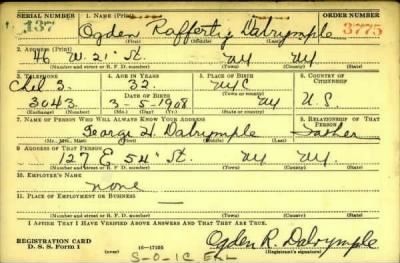 SERIAL NUMBER 1. NAME (Print) ORDER NUMBER
137 Ogden Rafferty Dalrymple 3775
(First) (Middle) (Last)
2. ADDRESS (Print)
46 W. 21" St. NY NY
(Number and street or R. F. D. number) (Town) (County) (State)
3. TELEPHONE 4. AGE IN YEARS 5. PLACE OF BIRTH 6. COUNTRY OF CITIZENSHIP
Chel 3. 32 NYC
DATE OF BIRTH (Town or county)
3043 3-5-1908 NY U.S.
(Exchange) (Number) (Mo.) (Day) (Yr.) (State or country)
7. NAME OF PERSON WHO WILL ALWAYS KNOW YOUR ADDRESS 8. RELATIONSHIP OF THAT PERSON
George H. Dalrymple Father
(Mr., Mrs., Miss) (First) (Middle) (Last)
9. ADDRESS OF THAT PERSON
127 E 54" St. NY NY.
(Number and street or R. F. D. number) (Town) (County) (State)
10. EMPLOYER'S NAME
none
11. PLACE OF EMPLOYMENT OR BUSINESS
(Number and street or R. F. D. number) (Town) (County) (State)
I AFFIRM THAT I HAVE VERIFIED ABOVE ANSWERS AND THAT THEY ARE TRUE.
REGISTRATION CARD
D. S. S. Form 1 16-17105 Ogden R. Dalrymple
(Registrant's signature)